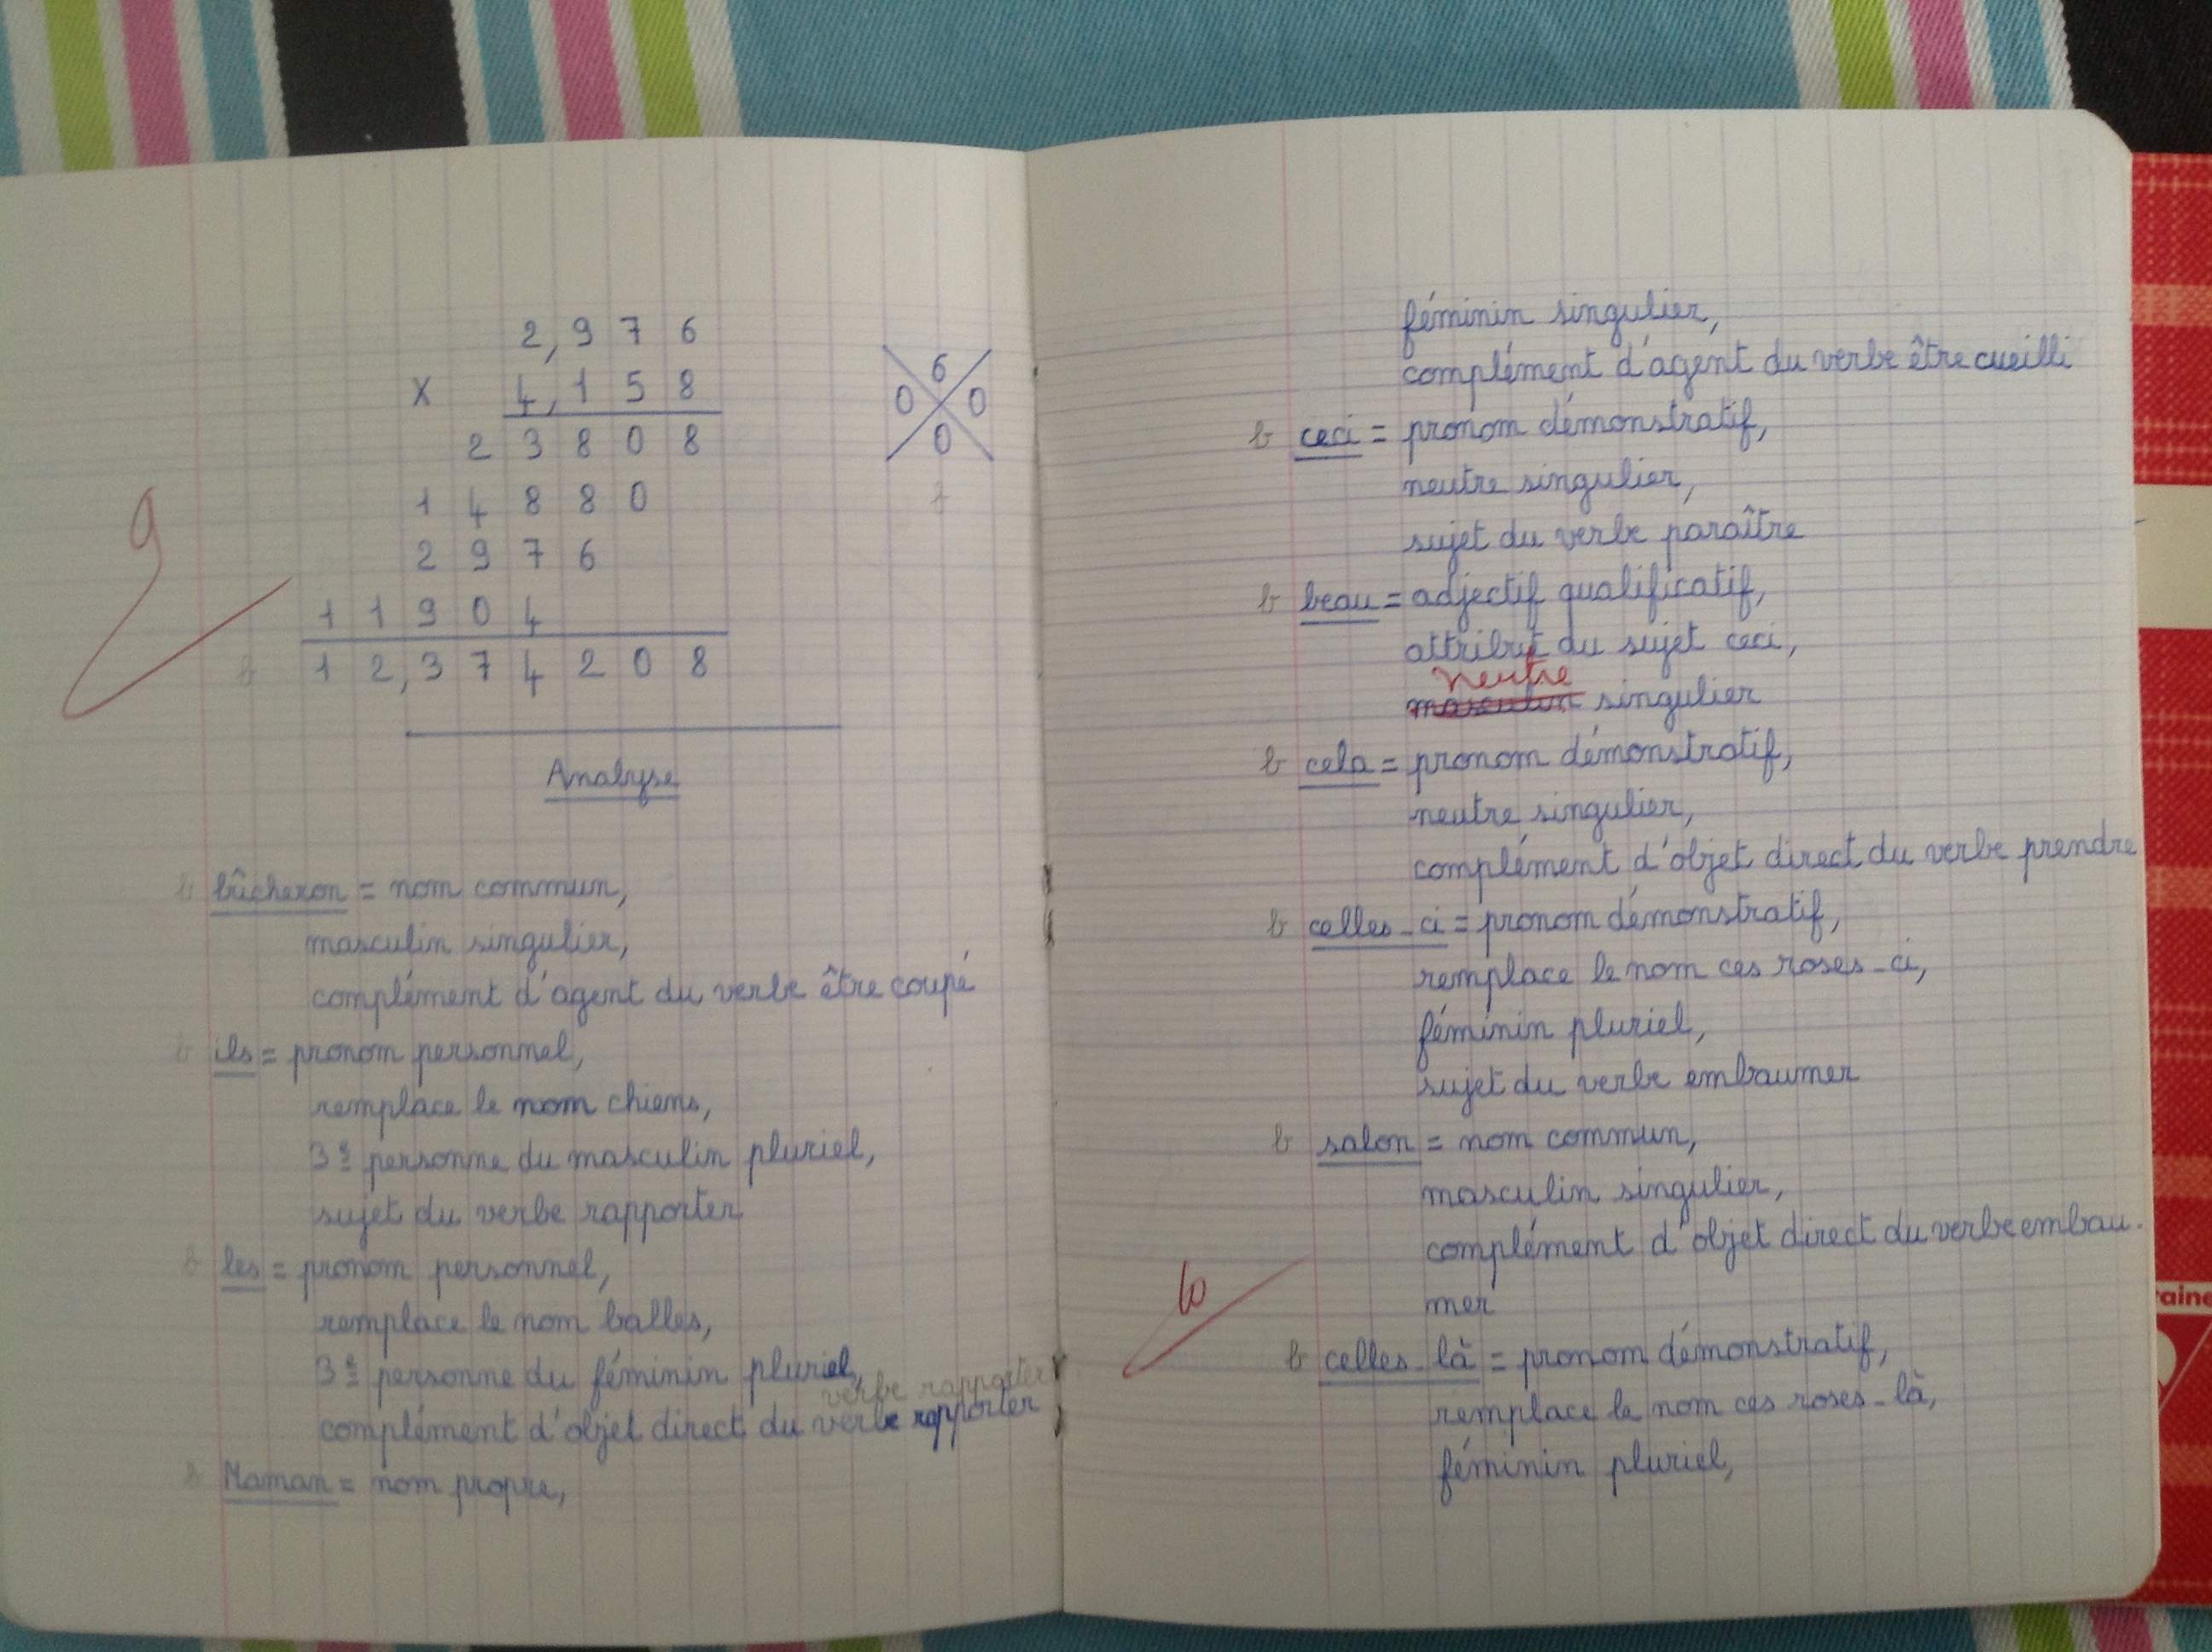 2,976
X 4,158
23808
14880
2976
11904
12,374208
6
0 0
0
9
Analyse
b bûcheron = nom commun,
masculin singulier,
complément d'agent du verbe être coupé
b ils = pronom personnel,
remplace le nom chiens,
3e personne du masculin pluriel,
sujet du verbe rapporter
b les = pronom personnel,
remplace le nom balles,
3e personne du féminin pluriel,
verbe rapporter
complément d'objet direct du verbe rapporter
b Maman = nom propre,
féminin singulier,
complément d'agent du verbe être cueilli
b ceci = pronom démonstratif,
neutre singulier,
sujet du verbe paraître
b beau = adjectif qualificatif,
attribut du sujet ceci,
neutre
masculin singulier
b cela = pronom démonstratif,
neutre singulier,
complément d'objet direct du verbe prendre
b celles-ci = pronom démonstratif,
remplace le nom ces roses-ci,
féminin pluriel,
sujet du verbe embaumer
b salon = nom commun,
masculin singulier,
complément d'objet direct du verbe embau-
mer
10
b celles-là = pronom démonstratif,
remplace le nom ces roses-là,
féminin pluriel,
raine